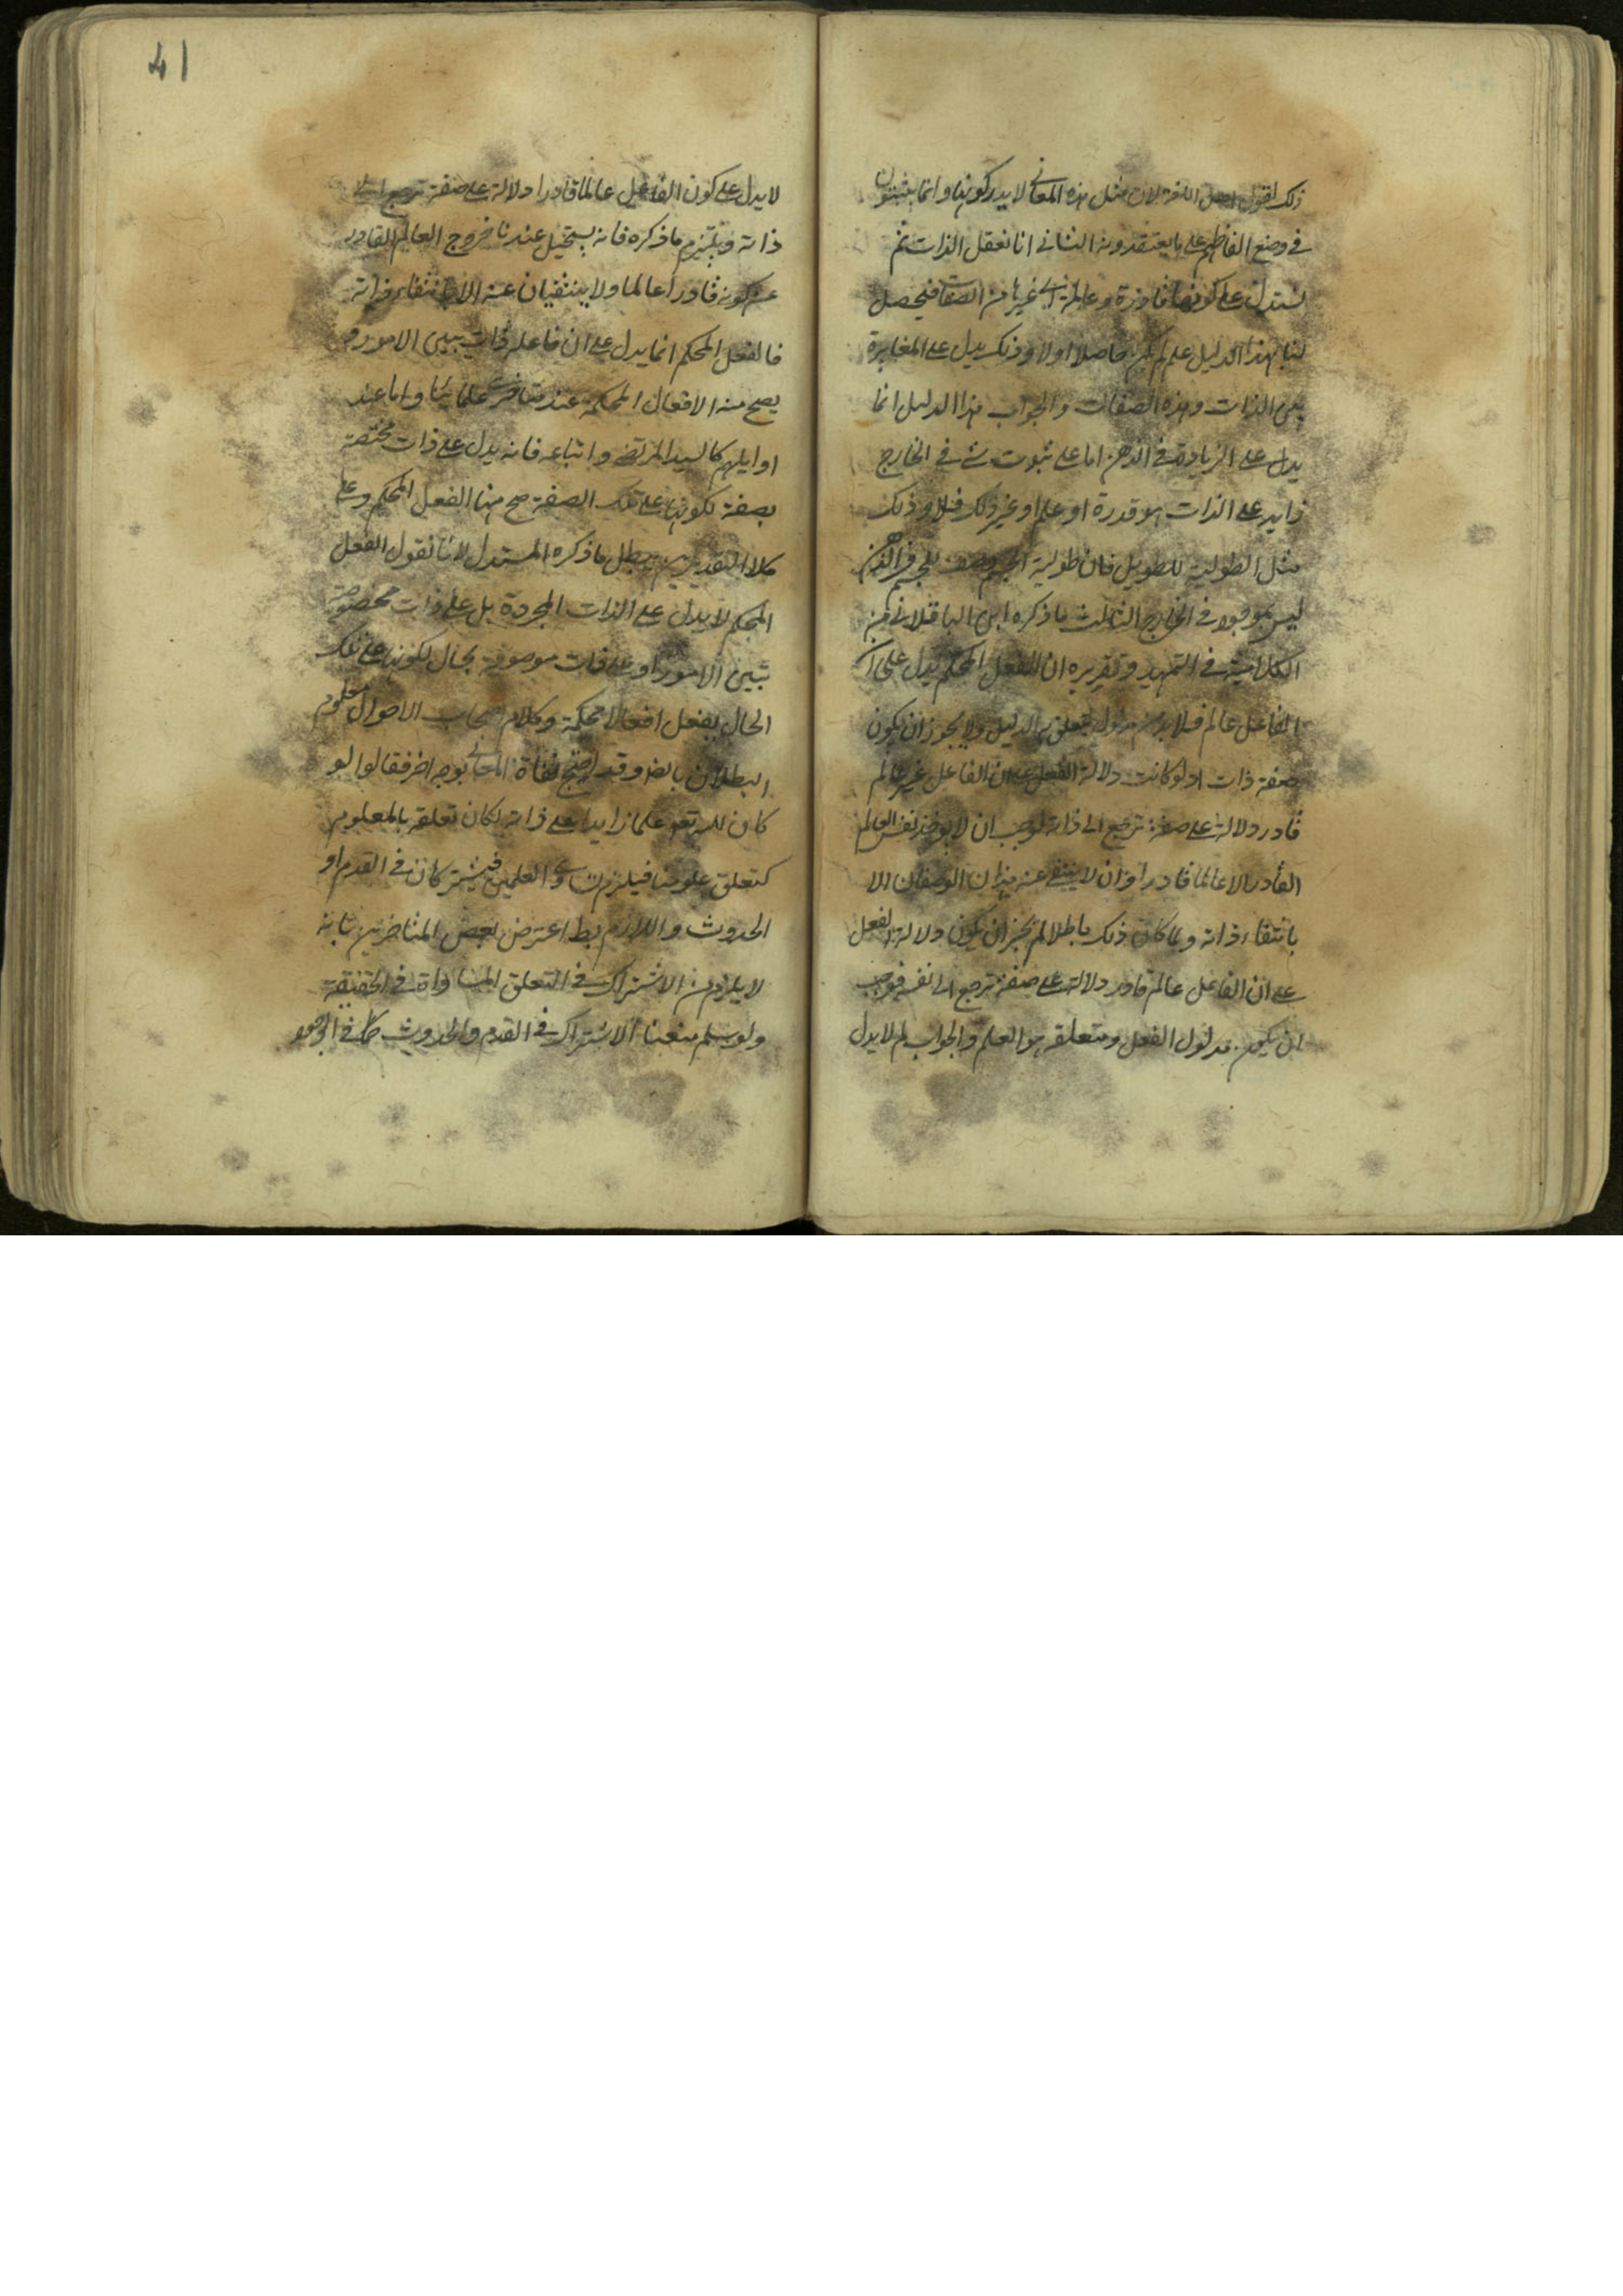 ذلك لقول اهل اللغة لان مثل هذه المعاني لا يدركونها وانما يثبتون
في وضع الفاظهم على ما يعتقدونه الثاني انا نعقل الذات ثم
نستدل على كونها قادرة وعالمة الى غيرها من الصفات فيحصل
لنا بهذا الدليل علم لم يكن حاصلا اولا وذلك يدل على المغايرة
بين الذات وهذه الصفات والجواب هذا الدليل انما
يدل على الزيادة في الذهن اما على ثبوت شئ في الخارج
زايد على الذات هو قدرة او علم او غير ذلك فلا وذلك
مثل الطولية للطويل فان طولية الجسم وصف للجسم في الذهن
ليس بموجود في الخارج الثالث ما ذكره ابن الباقلاني من
الكلامية في التمهيد وتقريره ان الفعل المحكم يدل على ان
الفاعل عالم فلا بد من مدلول يتعلق به الدليل ولا يجوز ان يكون
صفة ذات اذ لو كانت دلالة الفعل على ان الفاعل غير عالم
قادر دلالة على صفة ترجع الى ذاته لوجب ان لا يوجد نفس العالم
القادر الا عالما قادرا وان لا ينتفي عنه هذان الوصفان الا
بانتفاء ذاته ولما كان ذلك باطلا لم يجز ان يكون دلالة الفعل
على ان الفاعل عالم قادر دلالة على صفة ترجع الى نفسه فوجب
ان يكون مدلول الفعل ومتعلقه هو العلم والجواب لم لا يدل
41
لا يدل على كون الفاعل عالما قادرا دلالة على صفة ترجع الى
ذاته ويلتزم ما ذكره فانه يستحيل عندنا خروج العالم القادر
عن كونه قادرا عالما ولا ينتفيان عنه الا بانتفاء ذاته
فالفعل المحكم انما يدل على ان فاعله ذات يبين الامور و
يصح منه الافعال المحكمة عند متاخري علمائنا واما عند
اوايلهم كالسيد المرتضى واتباعه فانه يدل على ذات مختصة
بصفة لكونها على تلك الصفة صح منها الفعل المحكم وعلى
كلا التقديرين يبطل ما ذكره المستدل لانا نقول الفعل
المحكم لا يدل على الذات المجردة بل على ذات مخصوصة
تبين الامور او على ذات موصوفة بحال لكونها على تلك
الحال يفعل افعالا محكمة وكلام اصحاب الاحوال معلوم
البطلان بالض وقد احتج نفاة المعاني بوجه اخر فقالوا لو
كان لله تعو علما زايدا على ذاته لكان تعلقه بالمعلوم
كتعلق علومنا فيلزم تساوي العلمين فيشتركان في القدم او
الحدوث واللازم بط اعترض بعض المتاخرين بانه
لا يلزم من الاشتراك في التعلق المساواة في الحقيقة
ولو سلم منعنا الاشتراك في القدم والحدوث كما في الوجود